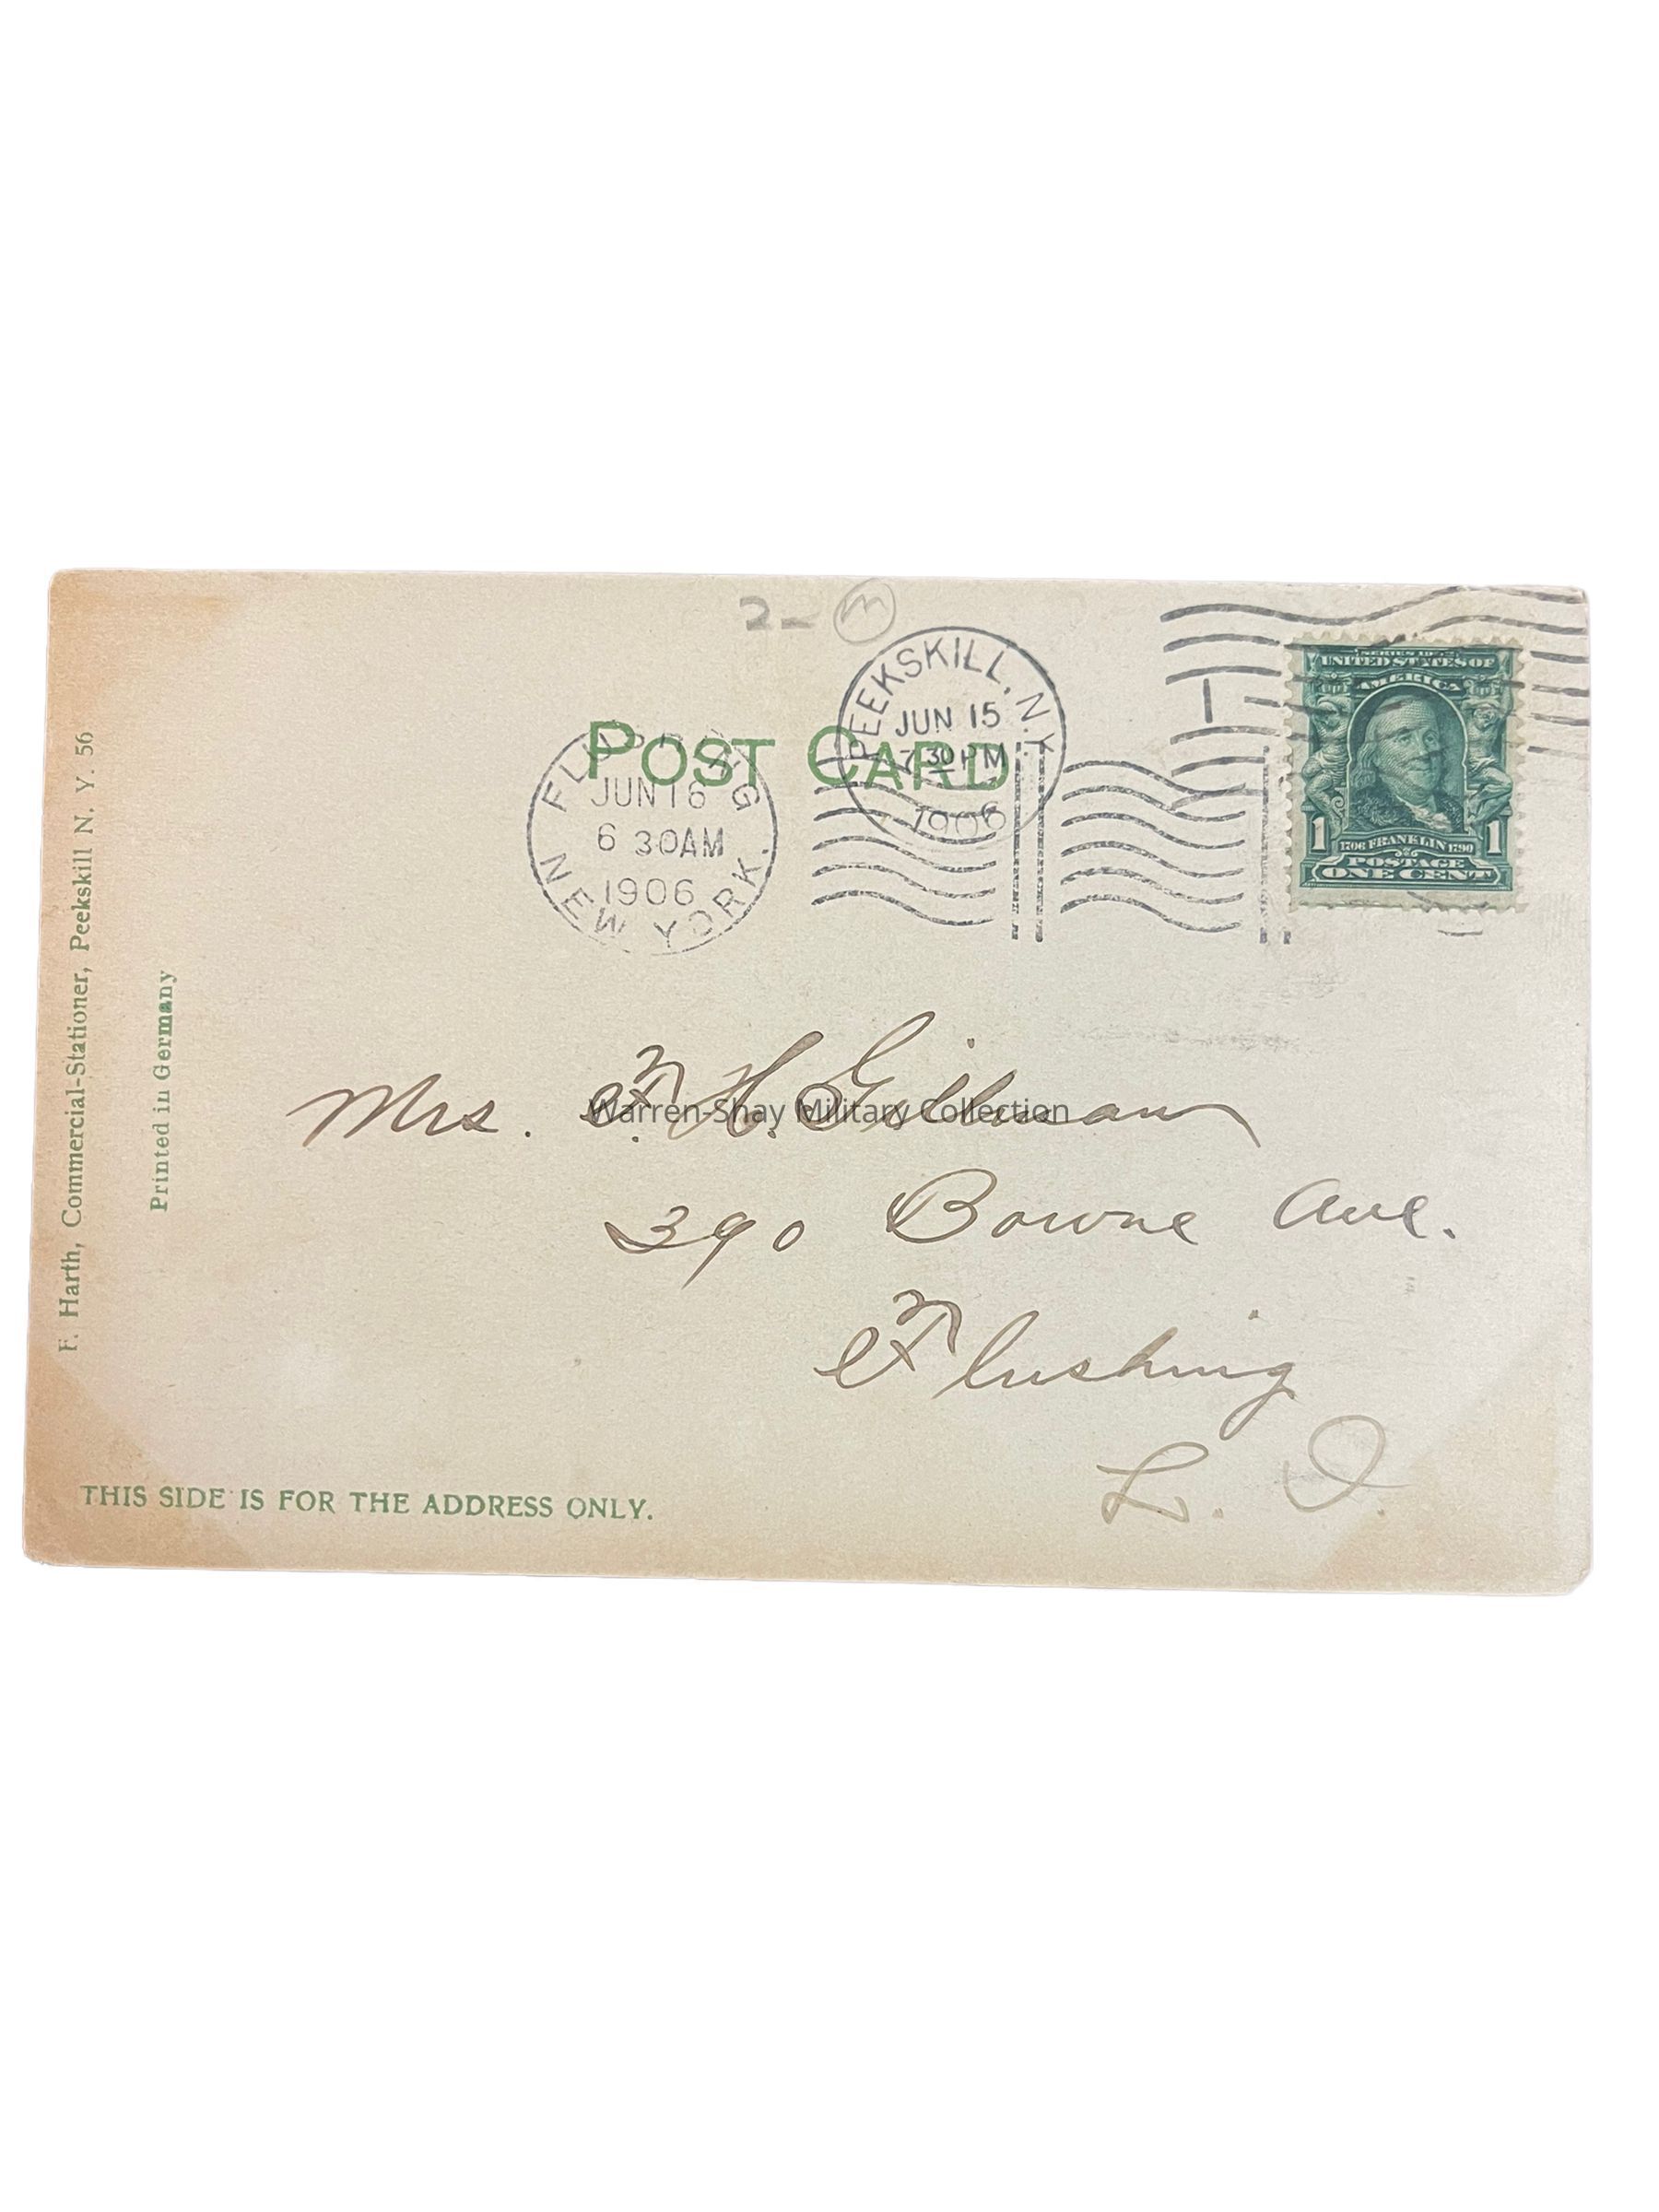 2- m
PEEKSKILL, N.Y.
JUN 15
7 30 PM
1906
POST CARD
FLUSHING
JUN 16
6 30AM
1906
NEW YORK.
1
UNITED STATES OF
AMERICA
1 1706 FRANKLIN 1790 1
POSTAGE
ONE CENT
Mrs. F. H.
Warren-Shay Military Collection
390 Bowne Ave.
Flushing
L. I.
F. Harth, Commercial-Stationer, Peekskill N. Y. 56
Printed in Germany
THIS SIDE IS FOR THE ADDRESS ONLY.